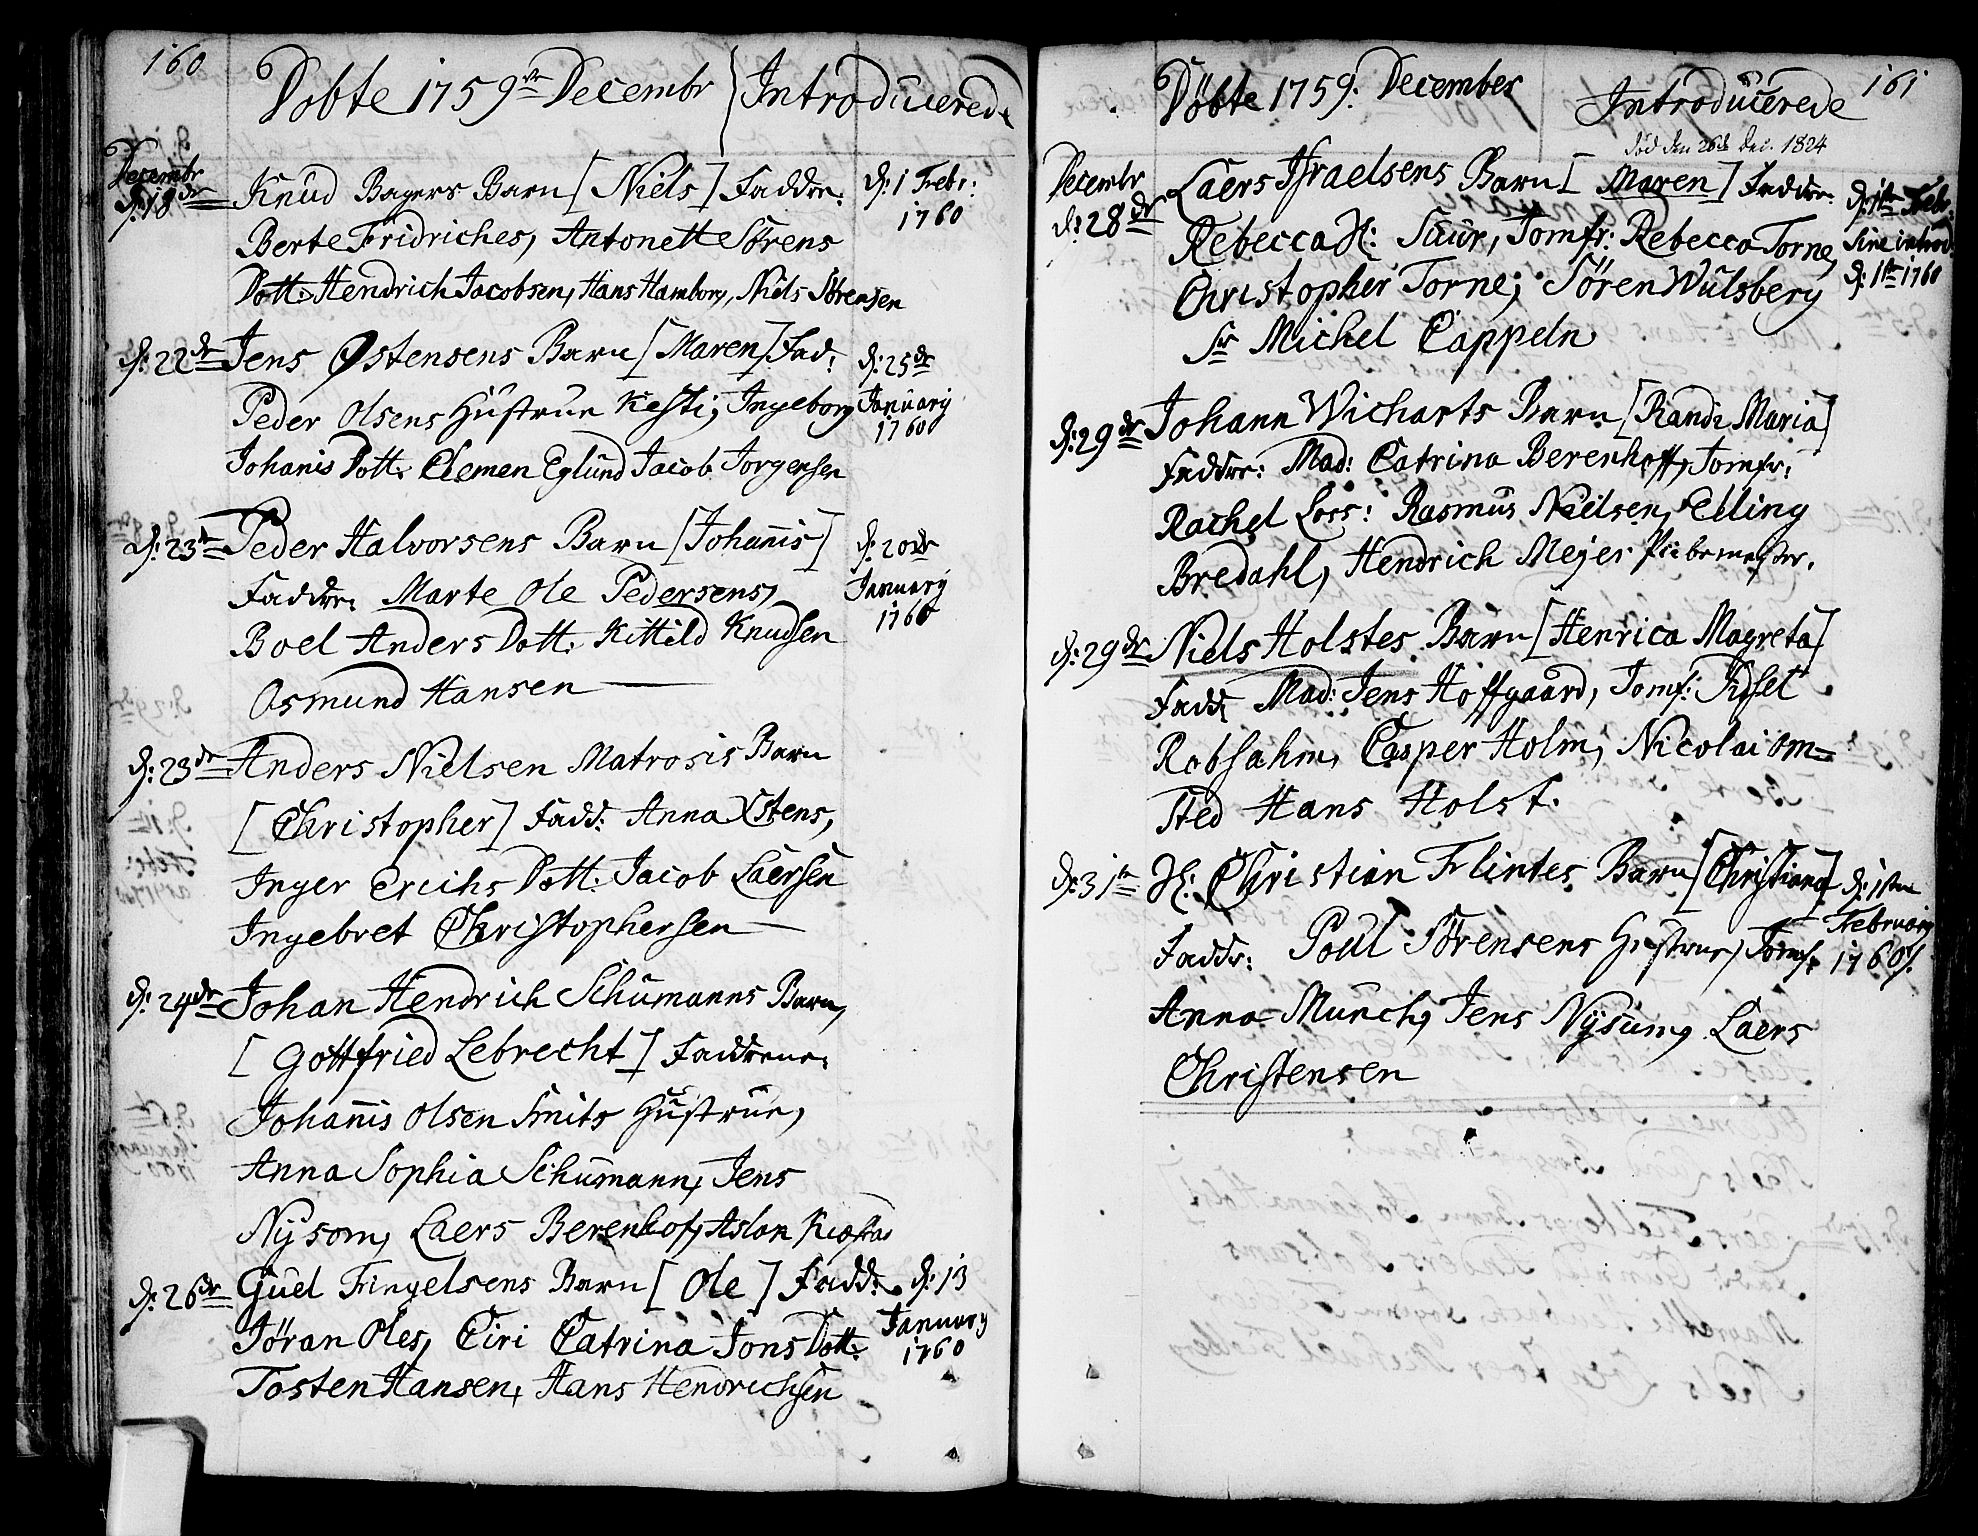 160
Döbte 1759 Decembr Introducerede
Decembr
d: 18de Knud Bagers Barn [Niels] Faddr: d: 1 Febr:
1760
Berte Fridriches, Antonett Sörens
Dott: Hendrich Jacobsen, Hans Hamborg, Niels Sörensen
d: 22de Jens Østensens Barn [Maren] Fad: d: 25de
Peder Olsens Hustrue Kesti, Ingeborg January
1760
Johanis Dott. Clemen Eglund Jacob Jorgensen
d: 23de Peder Halvorsens Barn [Johannis] d: 20de
January
1760
Faddr: Marte Ole Pedersens,
Boel Anders Dott. Kittild Knudsen
Osmund Hansen
d: 23de Anders Nielsen Matrosis Barn
[Christopher] Fadd: Anna Østens,
Inger Erichs Dott: Jacob Laersen
Ingebret Christophersen
d: 24de Johan Hendrich Schumanns Barn,
[Gottfried Lebrecht] Fadderne:
Johannis Olsen Smits Hustrue,
Anna Sophia Schumann, Jens
Nÿsom, Laers Berenhof, Aslon
d: 26de Guel Fingelsens Barn [Ole] Fadd: d: 13
Jöran Oles, Ciri Catrina Jons Dott: January
1760
Tosten Hansen, Hans Hendrichsen
161
Döbte 1759: December Introducerede
död den 26de Dec. 1824
Decembr
d: 28de Laers Israelsens Barn [Maren] Faddr: d: 1te Febr:
Rebecca H: Suur, Jomfr: Rebecca Torne, sine introd
Christopher Torne, Sören Wulsberg d: 1te 1760
Sr Michel Cappeln
d: 29de Johann Wicharts Barn [Randi Maria]
Faddr: Mad: Catrina Berenhoff, Jomfr:
Rachel Loss: Rasmus Nielsen, Elling
Bredahl, Hendrich Mejer Piibemester.
d: 29de Niels Holstes Barn [Henrica Magreta]
Fadd: Mad: Jens Hoffgaard, Jomf: Sidsel
Robsahm, Casper Holm, Nicolai Om=
sted Hans Holst.
d: 31te H: Christian Flintes Barn [Christiana] d: 1sten
Faddr: Poul Sörensens Hustrue, Jomfr February
1760
Anna Munch, Jens Nÿsum, Laers
Christensen